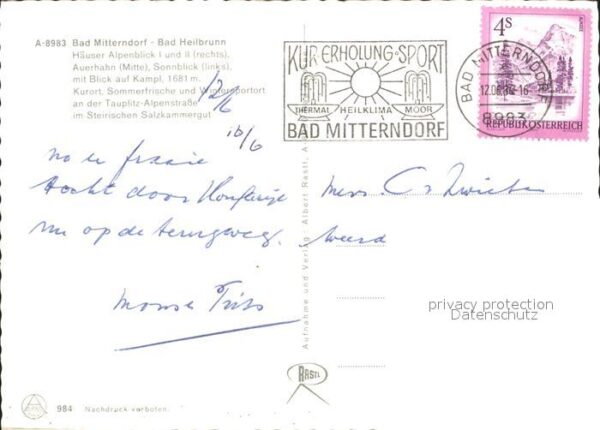 A-8983 Bad Mitterndorf - Bad Heilbrunn
Häuser Alpenblick I und II (rechts),
Auerhahn (Mitte), Sonnblick (links),
mit Blick auf Kampl, 1681 m.
Kurort, Sommerfrische und Wintersportort
an der Tauplitz-Alpenstraße
im Steirischen Salzkammergut
12/6
16/6
na
tocht door
nu op de terugweg.
KUR·ERHOLUNG·SPORT
THERMAL HEILKLIMA MOOR
BAD MITTERNDORF
BAD MITTERNDORF
8983
4S
REPUBLIK ÖSTERREICH
Weerd
Aufnahme und Verlag: Albert Rastl, A
privacy protection
Datenschutz
RASTL
984 Nachdruck verboten.